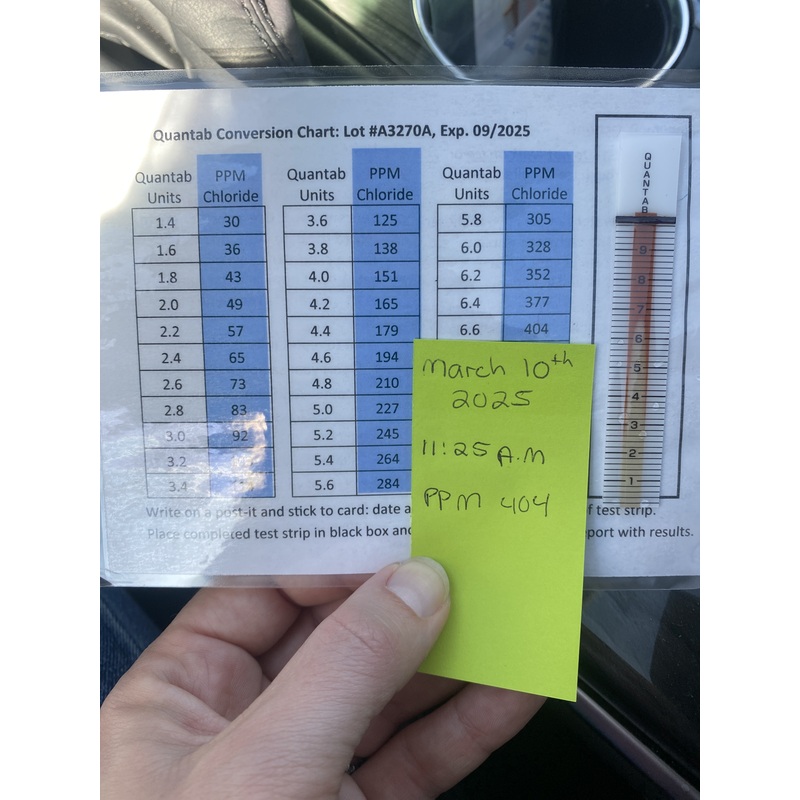 Quantab Conversion Chart: Lot #A3270A, Exp. 09/2025
Quantab Units PPM Chloride
1.4 30
1.6 36
1.8 43
2.0 49
2.2 57
2.4 65
2.6 73
2.8 83
3.0 92
3.2
3.4
Quantab Units PPM Chloride
3.6 125
3.8 138
4.0 151
4.2 165
4.4 179
4.6 194
4.8 210
5.0 227
5.2 245
5.4 264
5.6 284
Quantab Units PPM Chloride
5.8 305
6.0 328
6.2 352
6.4 377
6.6 404
QUANTAB
9
8
7
6
5
4
3
2
1
March 10th
2025
11:25 A.M
PPM 404
Write on a post-it and stick to card: date a
f test strip.
Place completed test strip in black box and
port with results.